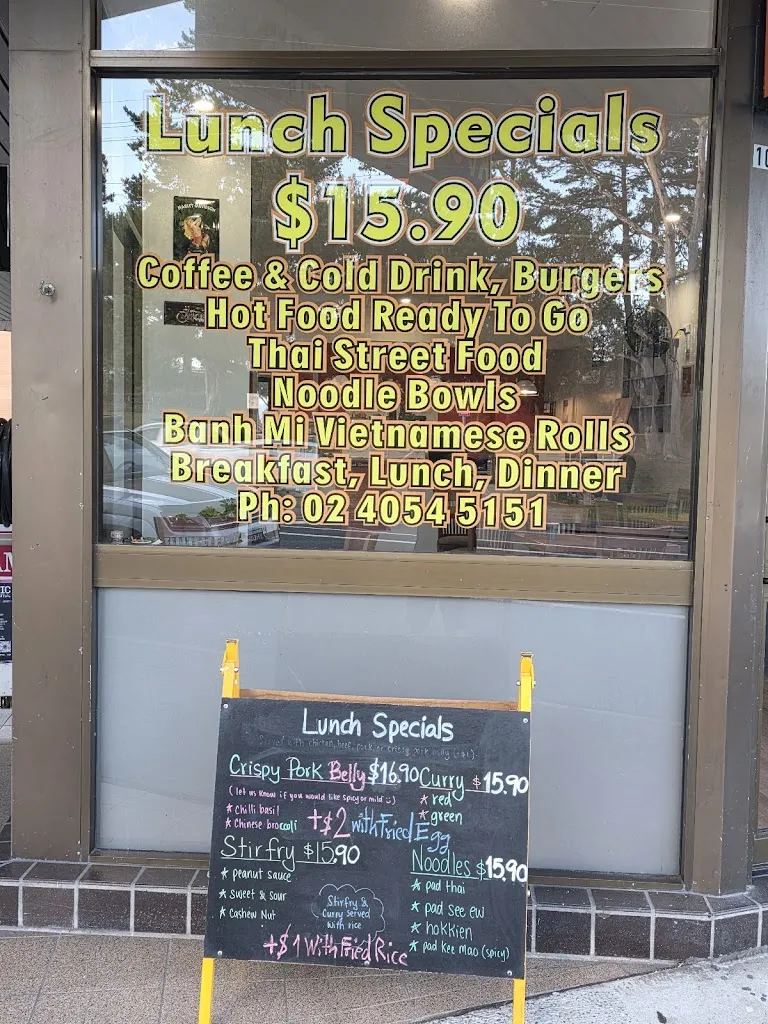 Lunch Specials
$15.90
Coffee & Cold Drink, Burgers
Hot Food Ready To Go
Thai Street Food
Noodle Bowls
Banh Mi Vietnamese Rolls
Breakfast, Lunch, Dinner
Ph: 02 4054 5151
10
Lunch Specials
Served with chicken, beef, pork or crispy pork belly
Crispy Pork Belly $16.90
(let us know if you would like spicy or mild :))
* chilli basil
* Chinese broccoli
+$2 with Fried Egg
Curry $15.90
* red
* green
Stirfry $15.90
* peanut sauce
* sweet & sour
* Cashew Nut
Stirfry &
Curry served
with rice
Noodles $15.90
* pad thai
* pad see ew
* hokkien
* pad kee mao (spicy)
+$1 With Fried Rice